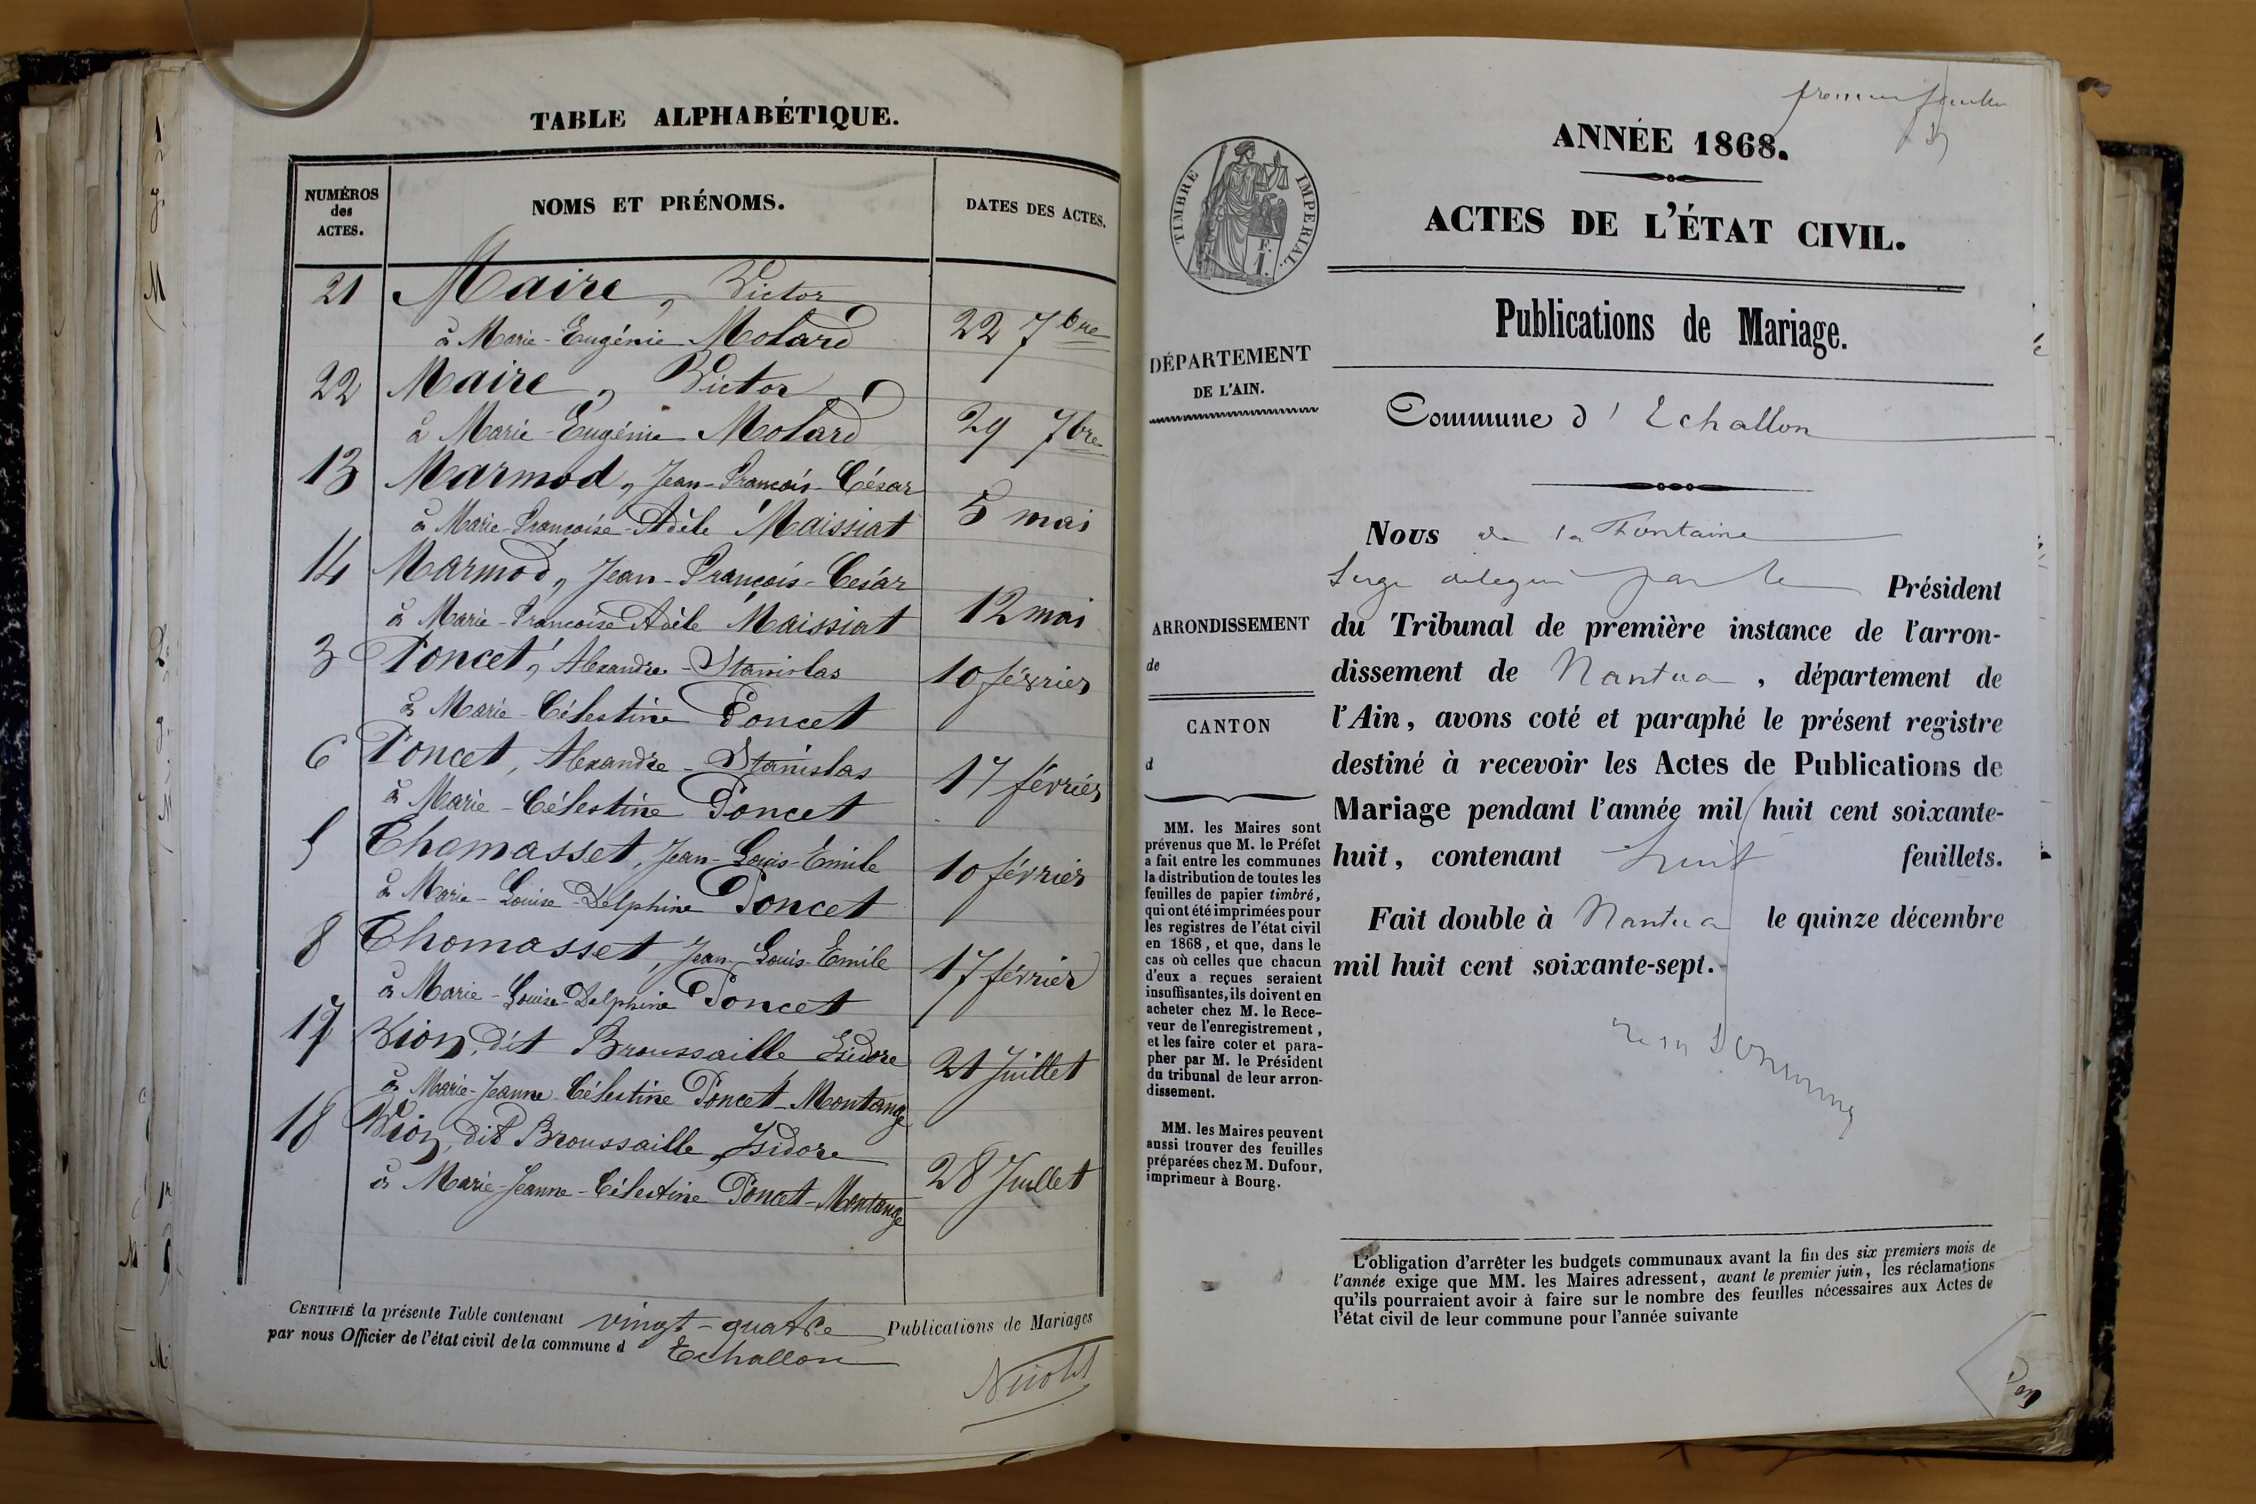 TABLE ALPHABÉTIQUE.
NUMÉROS
des
ACTES.
NOMS ET PRÉNOMS.
DATES DES ACTES.
21 Maire, Victor
à Marie-Eugénie Molard 22 7bre
22 Maire, Victor
à Marie-Eugénie Molard 29 7bre
13 Marmod, Jean-François-César
à Marie-Françoise-Adèle Maissiat 5 mai
14 Marmod, Jean-François-César
à Marie-Françoise Adèle Maissiat 12 mai
3 Poncet, Alexandre-Stanislas 10 février
à Marie-Célestine Poncet
6 Poncet, Alexandre-Stanislas 17 février
à Marie-Célestine Poncet
5 Thomasset, Jean-Louis-Émile 10 février
à Marie-Louise-Delphine Poncet
8 Thomasset, Jean Louis-Emile 17 février
à Marie-Louise-Delphine Poncet
17 Vion, dit Broussaille Isidore 21 Juillet
à Marie-Jeanne Célestine Poncet-Montange
18 Vion, dit Broussaille, Isidore
à Marie-Jeanne-Célestine Poncet-Montange 28 Juillet
CERTIFIÉ la présente Table contenant vingt-quatre Publications de Mariages
par nous Officier de l'état civil de la commune d Echallon
Nicolet
premier feuillet
ANNÉE 1868.
ACTES DE L'ÉTAT CIVIL.
TIMBRE IMPÉRIAL.
Publications de Mariage.
DÉPARTEMENT
DE L'AIN.
Commune d'Echallon
Nous de la Fontaine
Juge délégué par le Président
du Tribunal de première instance de l'arron-
dissement de Nantua, département de
l'Ain, avons coté et paraphé le présent registre
destiné à recevoir les Actes de Publications de
Mariage pendant l'année mil huit cent soixante-
huit, contenant huit feuillets.
Fait double à Nantua le quinze décembre
mil huit cent soixante-sept.
ARRONDISSEMENT
de
CANTON
d
MM. les Maires sont
prévenus que M. le Préfet
a fait entre les communes
la distribution de toutes les
feuilles de papier timbré,
qui ont été imprimées pour
les registres de l'état civil
en 1868, et que, dans le
cas où celles que chacun
d'eux a reçues seraient
insuffisantes, ils doivent en
acheter chez M. le Rece-
veur de l'enregistrement,
et les faire coter et para-
pher par M. le Président
du tribunal de leur arron-
dissement.
MM. les Maires peuvent
aussi trouver des feuilles
préparées chez M. Dufour,
imprimeur à Bourg.
L'obligation d'arrêter les budgets communaux avant la fin des six premiers mois de
l'année exige que MM. les Maires adressent, avant le premier juin, les réclamations
qu'ils pourraient avoir à faire sur le nombre des feuilles nécessaires aux Actes de
l'état civil de leur commune pour l'année suivante